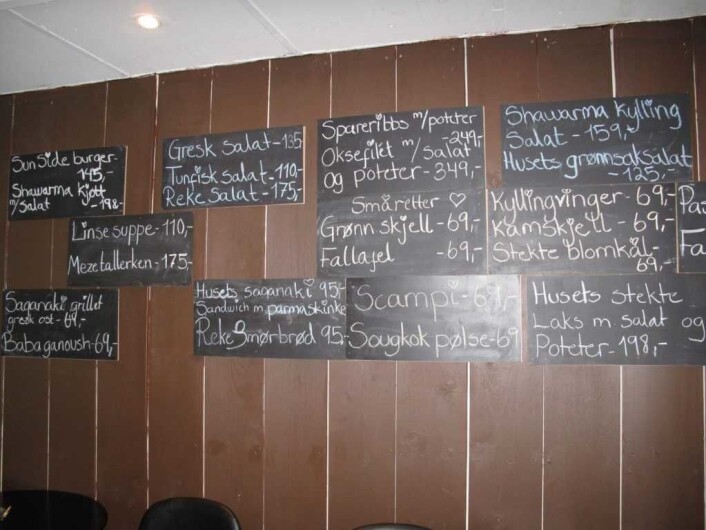 Sun Side burger-
145,-
Shawarma kjøtt
m/salat -198-
Gresk salat-135
Tunfisk salat-110,-
Reke Salat-175,-
Spareribbs m/poteter
-249,-
Oksefilet m/salat
og poteter-349,-
Shawarma kylling
Salat-159,-
Husets grønnsaksalat
-125,-
Linse suppe-110,-
Mezetallerken-175,-
Småretter ♡
Grønn skjell-69,-
Fallafel -69,-
Kyllingvinger-69,-
Kamskjell-69,-
Stekte blomkål-
69,-
Pa
Fa
Saganaki grillet
gresk ost-69,-
Baba ganoush-69,-
Husets saganaki 95-
Sandwich m. parmaskinke
Reke Smørbrød 95-
Scampi-69,-
Sougkok pølse-69
Husets stekte
Laks m. salat og
Poteter-198,-